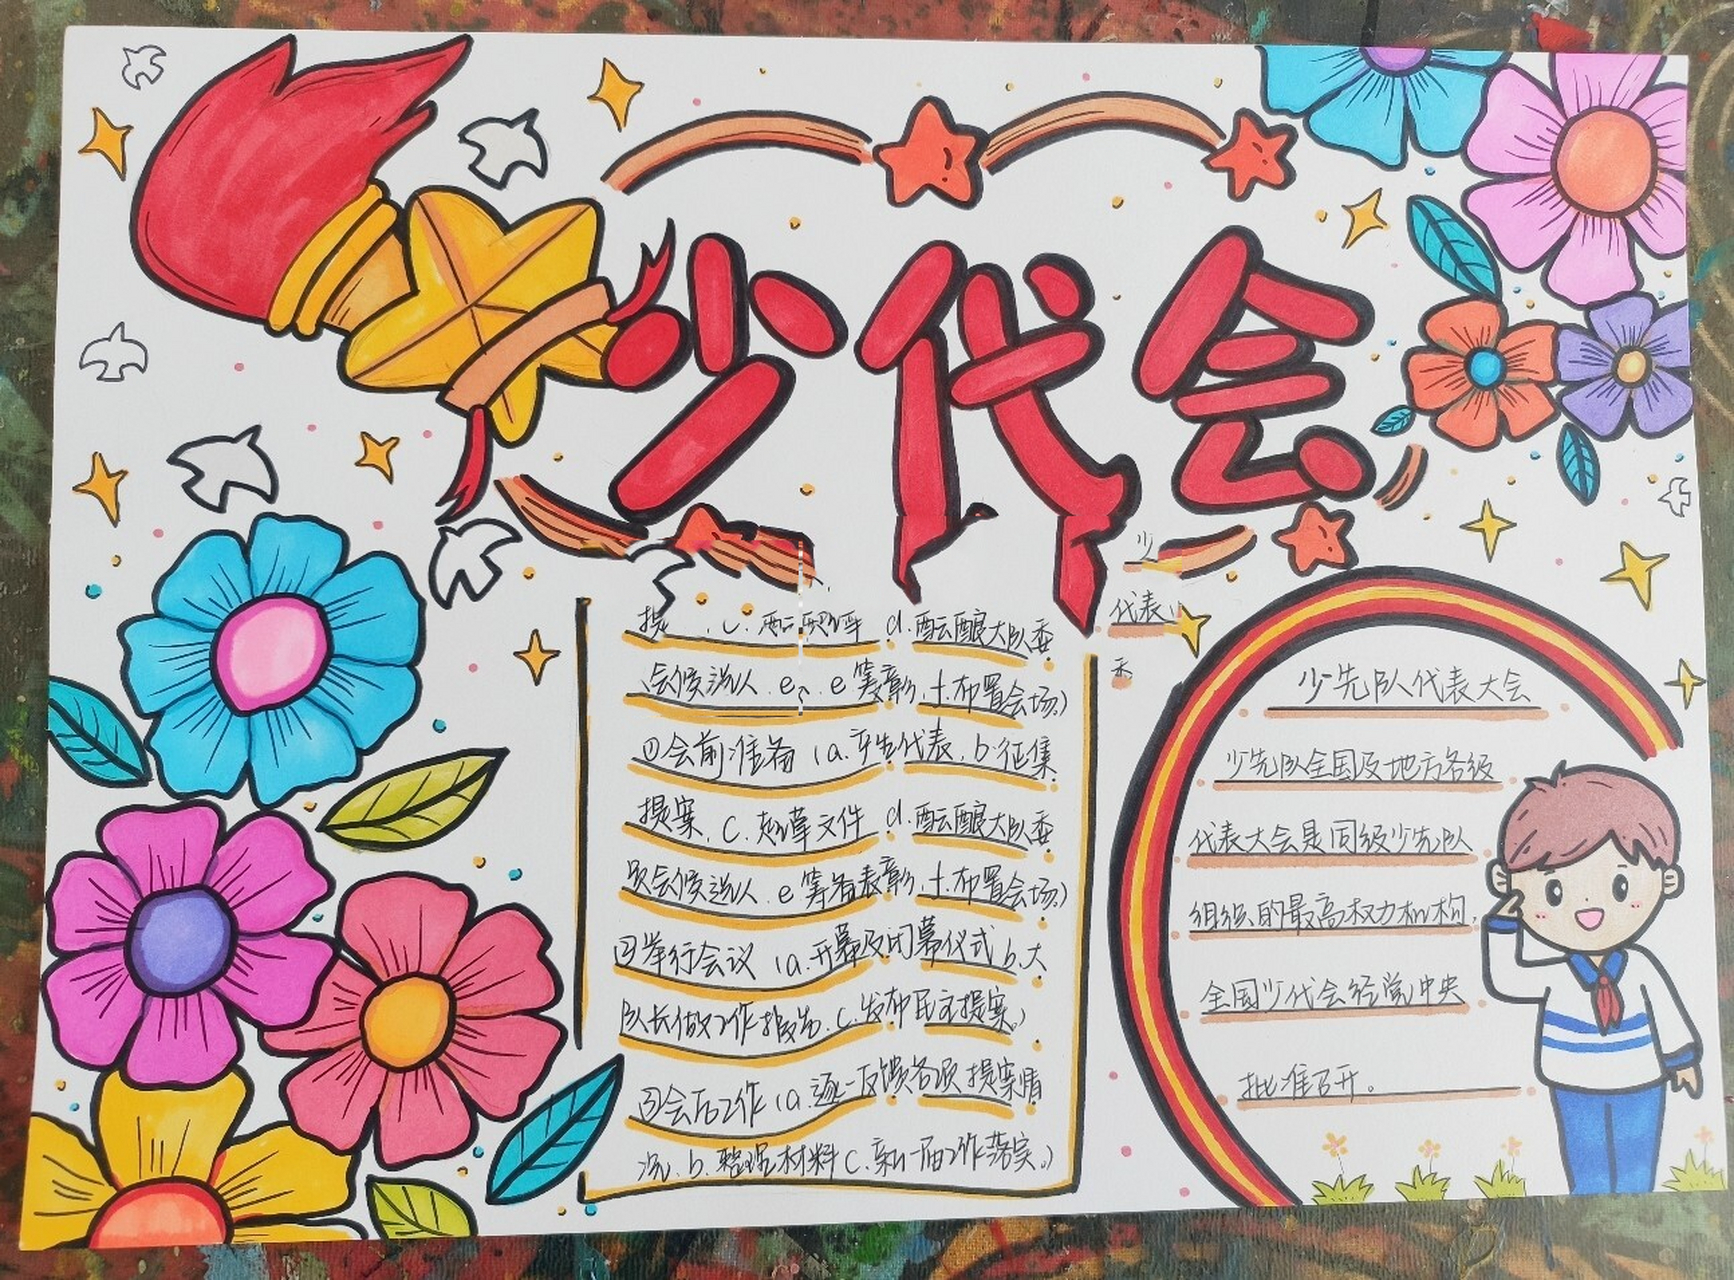 少代会
少
代表
提 c. d.酝酿大队委
会候选人.e. e筹 章彰.士.布置会场)
①会前准备(a.产生代表.b.征集
提案.c.起草文件 d.酝酿大队委
员会候选人.e筹备表彰.士.布置会场)
②举行会议(a.开幕及闭幕仪式b.大
队长做工作报告.c.发布民主提案.)
③会后工作(a.逐一反馈各项提案情
况.b.整理材料c.新一届工作落实.)
少先队代表大会
少先队全国及地方各级
代表大会是同级少先队
组织的最高权力机构,
全国少代会经党中央
批准召开。